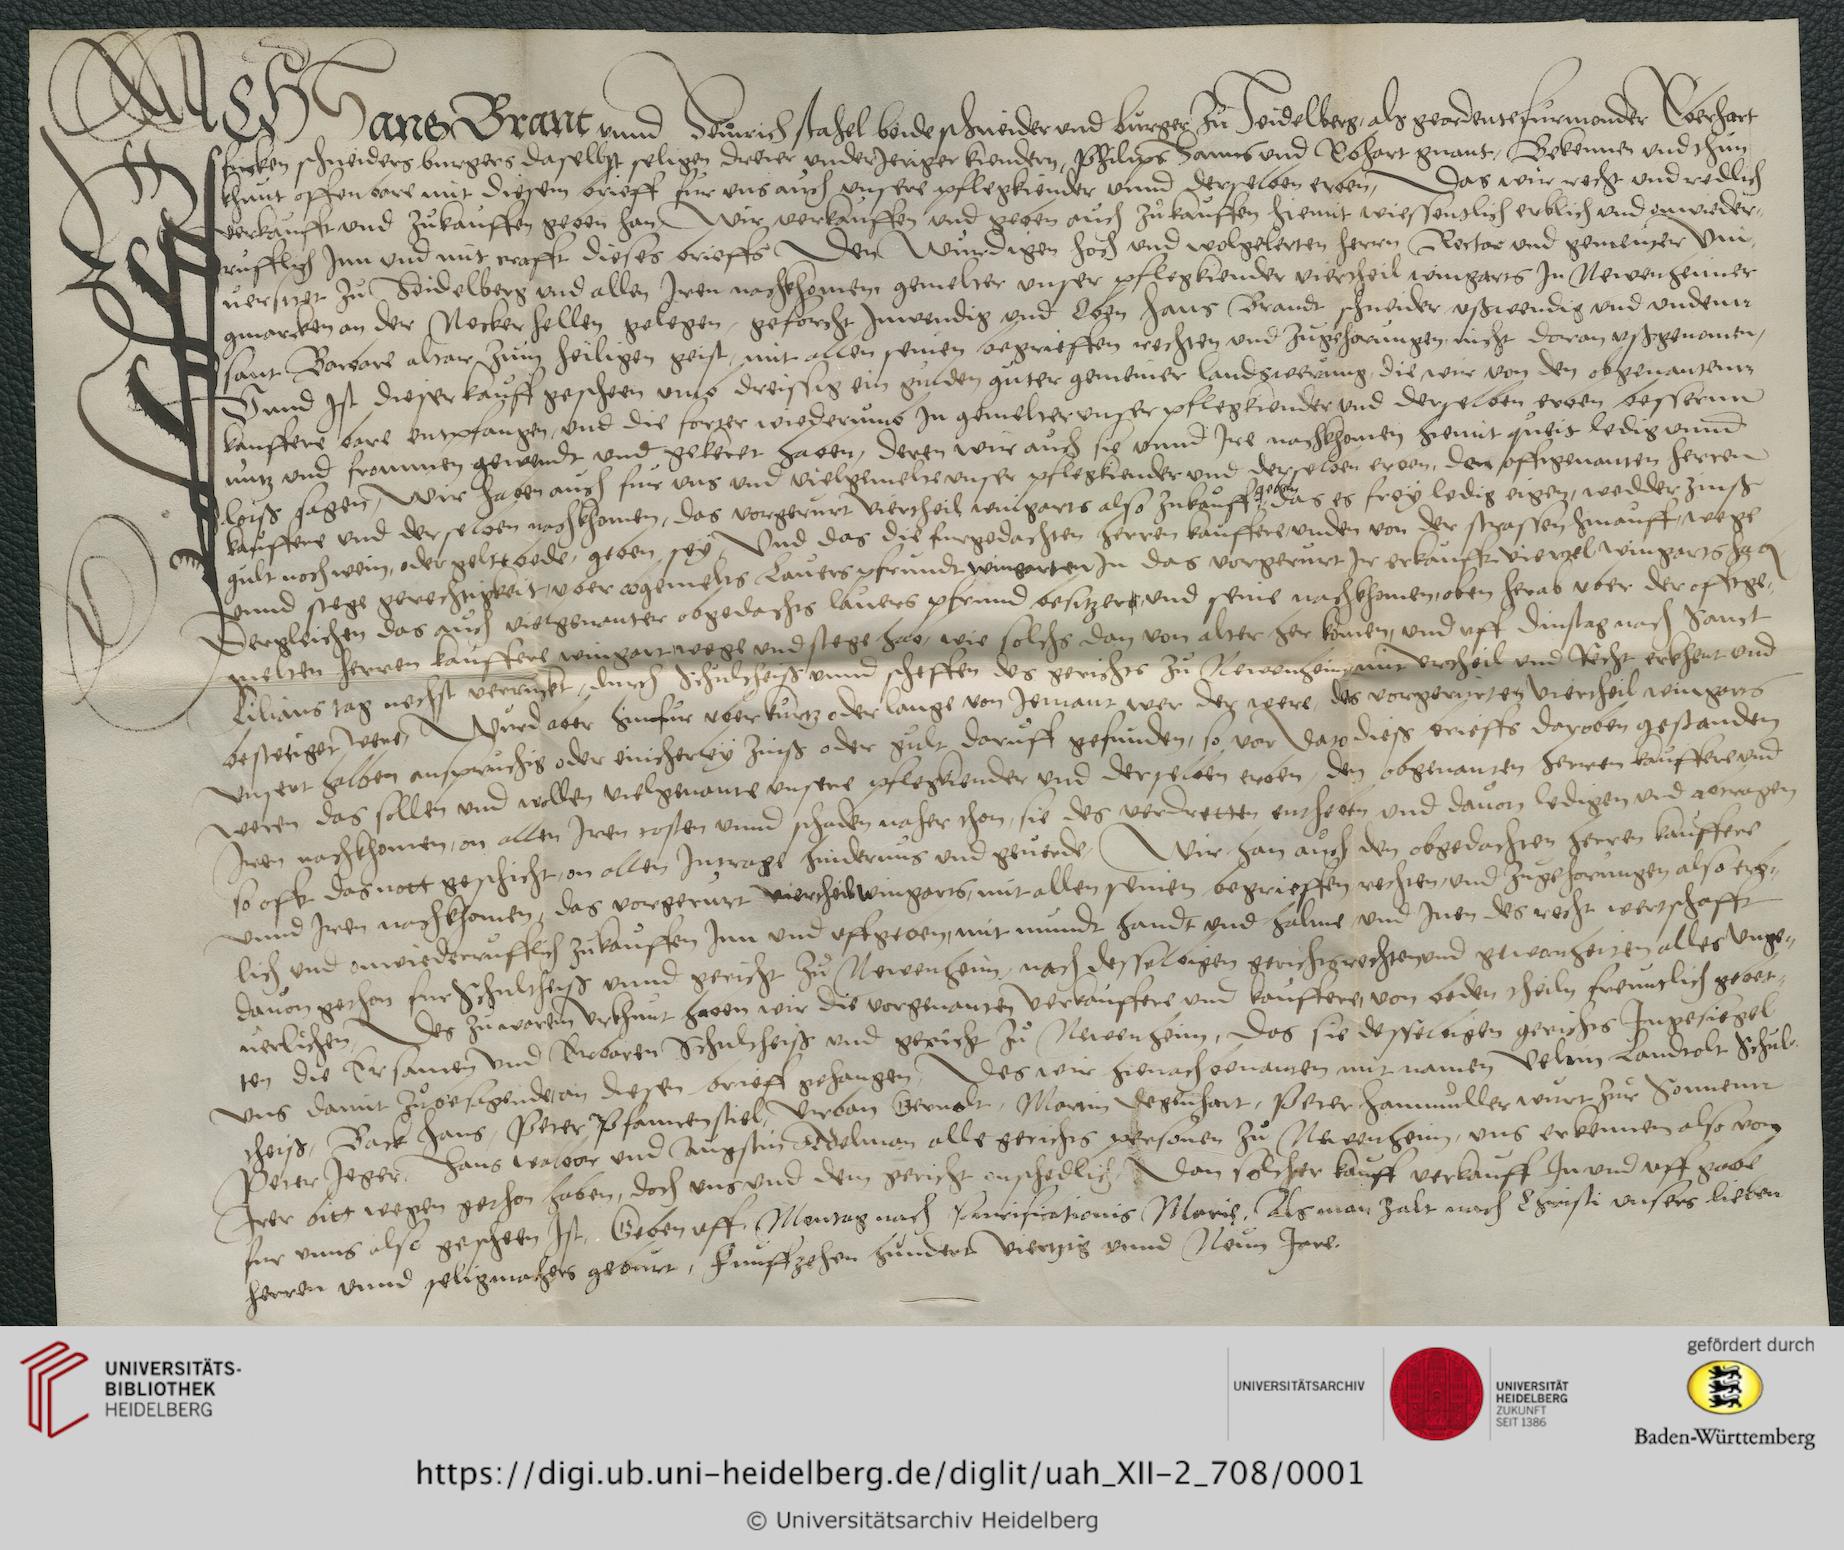 Ich Hans Brant unnd Heinrich stahel beide schneider und burger zu Heidelberg, als geordente furmonder Eberhart
schneiders burgers daselbst seligen dreier underjeriger kiendern, Philips Hanns und Ebhart gnant, Bekennen und thun
khunt offenbare mit diesem brieff fur uns auch unsere pflegkiender unnd derselben erben, Das wir recht und redlich
verkaufft und zukauffen geben han, Wir verkauffen und geben auch zukauffen hiemit wiessentlich erblich und onwieder-
rufflich Inn und mit crafft dieses brieffs Den Wurdigen hoch und wolgelerten herrn Rector und gemeiner Uni-
versitet zu Heidelberg und allen Iren nachkhomen gemelter unser pflegkiender viertheil wingarts In Newenheimer
gmarcken an der Necker hellen gelegen, geforcht Inwendig und Oben Hans Brandt schneider ußwendig und undenn
sant Barbare altar zum heiligen geist, mit allen seinen begrieffen rechten und zugehorungen nicht daran ußgenomen,
Unnd Ist dieser kauff gescheen umb dreissig ein gulden guter gemeiner landswerung, die wir von den obgenantenn
kauffere bare entpfangen, und die forter wiederumb In gemelter unser pflegkiender und derselben erben bessernn
nutz und frommen gewendt und gekeret haben, deren wir auch sie unnd Ire nachkhomen hiemit queit ledig unnd
loiß sagen, Wir haben auch fur uns und vielgemelte unser pflegkiender und derselben erben, den offtgenanten herren
kauffere und derselben nachkhomen, das vorgerurt viertheil wingarts also zukauff geben das es frey ledig eigen, wedder zinß
gult noch wein, oder gelt bede, geben sey, Und das die furgedachten herren kauffere unden von der strassen hinauff, wege
unnd stege gerechtigkeit, uber obgemelts Lauers pfrundt wingarten In das vorgerurt Ir erkaufft viertzel wingarts hab
Dergleichen das auch vielgenanter obgedachts lauers pfrund besitzer, und seine nachkhomen, oben herab uber der offtge-
melten herren kauffere wingart, wege und stege hab, wie solchs dan von alter her komen, und uff dinstag nach Sanct
Kilians tag nechst verruckt, durch Schultheiß unnd scheffen des gerichts zu Newenheim mit urtheil und Recht erkhent und
bestetiget were, Wurd aber hinfur uber kurtz oder lange von Iemant wer der were, des vorgerurten viertheil wingarts
unsert halben anspruchig oder einicherley zinß oder gult daruff gefunden, so vor dato dieß brieffs daroben gestanden
weren das sollen und wollen vielgenante unsere pflegkiender und derselben erben, den obgenanten herren kauffere und
Iren nachkhomen, on allen Iren costen unnd schaden naher thon, sie des verdretten entheben und davon ledigen und abtragen
so offt das nott geschicht, on allen Intrage hindernus und geverde, Wir han auch den obgedachten herren kauffere
unnd Iren nachkhomen, das vorgerurt viertheil wingarts, mit allen seinen begrieffen rechten, und zugehorungen also erb-
lich und onwiederrufflich zukauffen Inn und uffgeben, mit mundt handt und halme und Inen des recht wertschafft
davon gethon fur Schultheiß unnd gericht zu Newenheim, nach desselbigen gerichts rechten und gewonheiten alles unge-
verlichen, Des zu warem urkhunt haben wir die vorgenanten verkauffere und kauffere, von beden theiln freuntlich gebet-
ten die Ersamen und Erbaren Schultheiß und gericht zu Newenheim, Das sie desselbigen gerichts Ingesiegel
uns damit zubesagende, an diesen brieff gehangen, Des wir hienach benanten mit namen Velten Landtolt Schul-
theiß, Back Hans, Peter Pfannenstiel, Urban Berndt, Martin Degenhart, Peter Hanmuller wurt zur Sonnenn
Peter Jeger, Hans und Augstin Adelman alle gerichts personen zu Newenheim, uns erkennen also von
Irer bitt wegen gethon haben, doch uns und dem gericht onschedlich, Dan solcher kauff verkauff In und uff gabe
fur unns also gescheen Ist, Geben uff Montag nach Purificationis Marie, Als man zalt nach Christi unsers lieben
herren unnd seligmachers geburt, Funffzehen hundert Viertzig unnd Neun Jare.
UNIVERSITÄTS-
BIBLIOTHEK
HEIDELBERG
UNIVERSITÄTSARCHIV
UNIVERSITÄT
HEIDELBERG
ZUKUNFT
SEIT 1386
gefördert durch
Baden-Württemberg
https://digi.ub.uni-heidelberg.de/diglit/uah_XII-2_708/0001
© Universitätsarchiv Heidelberg